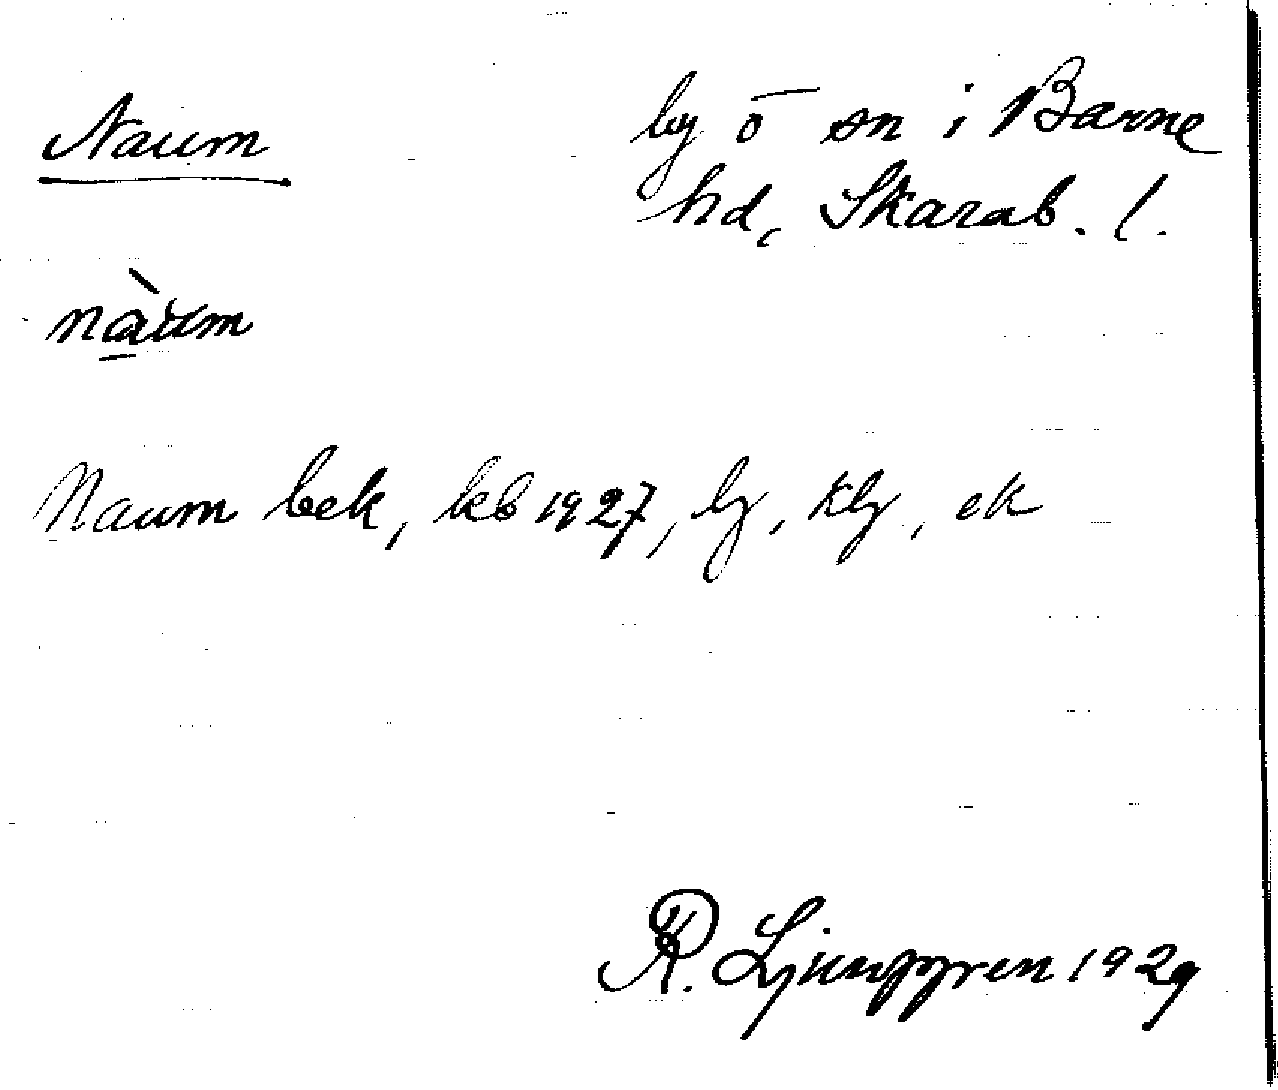 Naum by o sn i Barne
hd, Skarab. l.
nàum
Naum bek, kb 1927, by, kly, ek
R. Ljunggren 1929